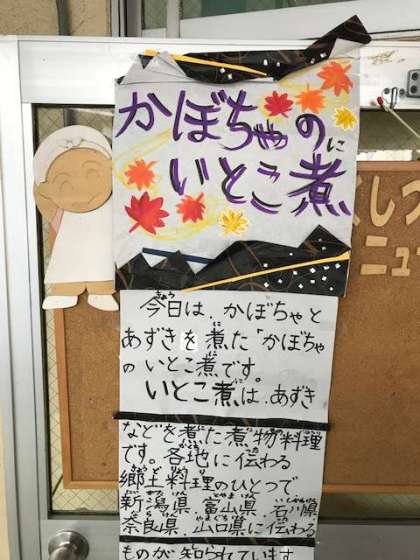 かぼちゃの
いとこ煮
今日は、かぼちゃと
あずきを煮た「かぼちゃ
のいとこ煮です。
いとこ煮は、あずき
などを煮た煮物料理
です。各地に伝わる
郷土料理のひとつで
新潟県、富山県、石川県
奈良県、山口県に伝わる
ものが知られています